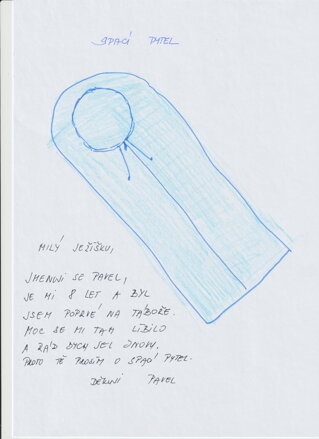 SPACÍ PYTEL
MILÝ JEŽÍŠKU,
JMENUJI SE PAVEL,
JE MI 8 LET A BYL
JSEM POPRVÉ NA TÁBOŘE.
MOC SE MI TAM LÍBILO
A RÁD BYCH JEL ZNOVU.
PROTO TĚ PROSÍM O SPACÍ PYTEL.
DĚKUJI PAVEL